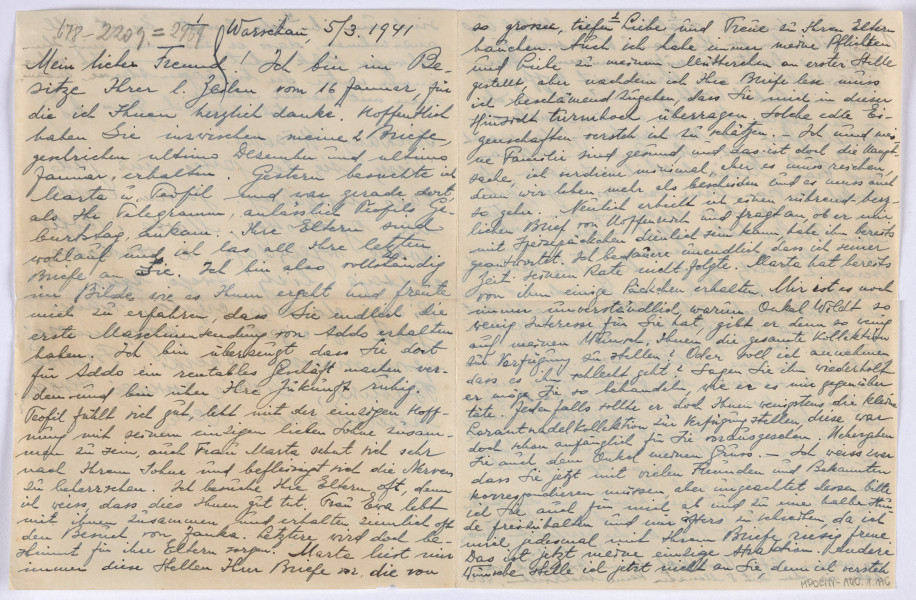 678-2209 = 2
Warschau, 5/3. 1941
Mein lieber Freund! Ich bin im Be-
sitze Ihrer l. Zeilen vom 16 Januar, für
die ich Ihnen herzlich danke. Hoffentlich
haben Sie inzwischen meine 2 Briefe
geschrieben ultimo Dezember und ultimo
Januar, erhalten. Gestern besuchte ich
Marta u. Teofil und war gerade dort,
als Ihr Telegramm, anlässlich Teofils Ge-
burtstag, ankam. Ihre Eltern sind
wohlauf und ich las all Ihre letzten
Briefe an Sie. Ich bin also vollständig
im Bilde wie es Ihnen ergeht und freute
mich zu erfahren, dass Sie endlich die
erste Maschinensendung von Addo erhalten
haben. Ich bin überzeugt dass Sie dort
für Addo ein rentables Geschäft machen wer-
den und bin über Ihre Zukunft ruhig.
Teofil fühlt sich gut, lebt mit der einzigen Hoff-
nung mit seinem einzigen lieben Sohne zusam-
men zu sein, auch Frau Marta sehnt sich sehr
nach Ihrem Sohne und befleissigt sich die Nerven
zu beherrschen. Ich besuche Ihre Eltern oft, denn
ich weiss, dass dies Ihnen gut tut. Frau Eva lebt
mit ihnen zusammen und erhalten ziemlich oft
den Besuch von Janka. Letztere wird doch be-
stimmt für ihre Eltern sorgen. Marta liest mir
immer diese Stellen Ihrer Briefe vor, die von
so grosser, tiefer Liebe und Treue zu Ihren Eltern
hauchen. Auch ich habe immer meine Pflichten
und Liebe zu meinem Mütterchen an erster Stelle
gestellt, aber nachdem ich Ihre Briefe lese muss
ich beschämend zugeben, dass Sie mich in dieser
Hinsicht turmhoch überragen. Solche edle Ei-
genschaften verstehe ich zu schätzen. - Ich und mei-
ne Familie sind gesund und das ist doch die Haupt-
sache, ich verdiene minimal, aber es muss reichen,
denn wir leben mehr als bescheiden und es muss auch
so gehn. - Neulich erhielt ich einen rührend herz-
lichen Brief von und fragt an, ob er mir
mit Speisepäckchen dienlich sein kann, habe ihm bereits
geantwortet. Ich bedauere unendlich dass ich seiner
Zeit seinem Rate nicht folgte. Marta hat bereits
von ihm einige Päckchen erhalten. Mir ist es noch
immer unverständlich, warum Onkel so
wenig Interesse für Sie hat, gibt er denn so wenig
auf meinen Wunsch, Ihnen die gesamte Kollektion
zur Verfügung zu stellen? Oder soll ich annehmen
dass es ihm schlecht geht? Sagen Sie ihm wiederholt
er möge Sie so behandeln wie er es mir gegenüber
täte. Jedenfalls sollte er doch Ihnen wenigstens die kleine
zur Verfügung stellen, diese war
doch schon anfänglich für Sie vorausgesehen. Übergeben
Sie auch dem Onkel meinen Gruss. - Ich weiss zwar
dass Sie jetzt mit vielen Freunden und Bekannten
korrespondieren müssen, aber ungeachtet dessen bitte
ich Sie auch für mich ab und zu eine halbe Stun-
de freizuhalten und mir öfters zu schreiben, da ich
mich jedesmal mit Ihrem Briefe riesig freue.
Das ist jetzt meine einzige Attraktion. Andere
Wünsche stelle ich jetzt nicht an Sie denn ich versteh